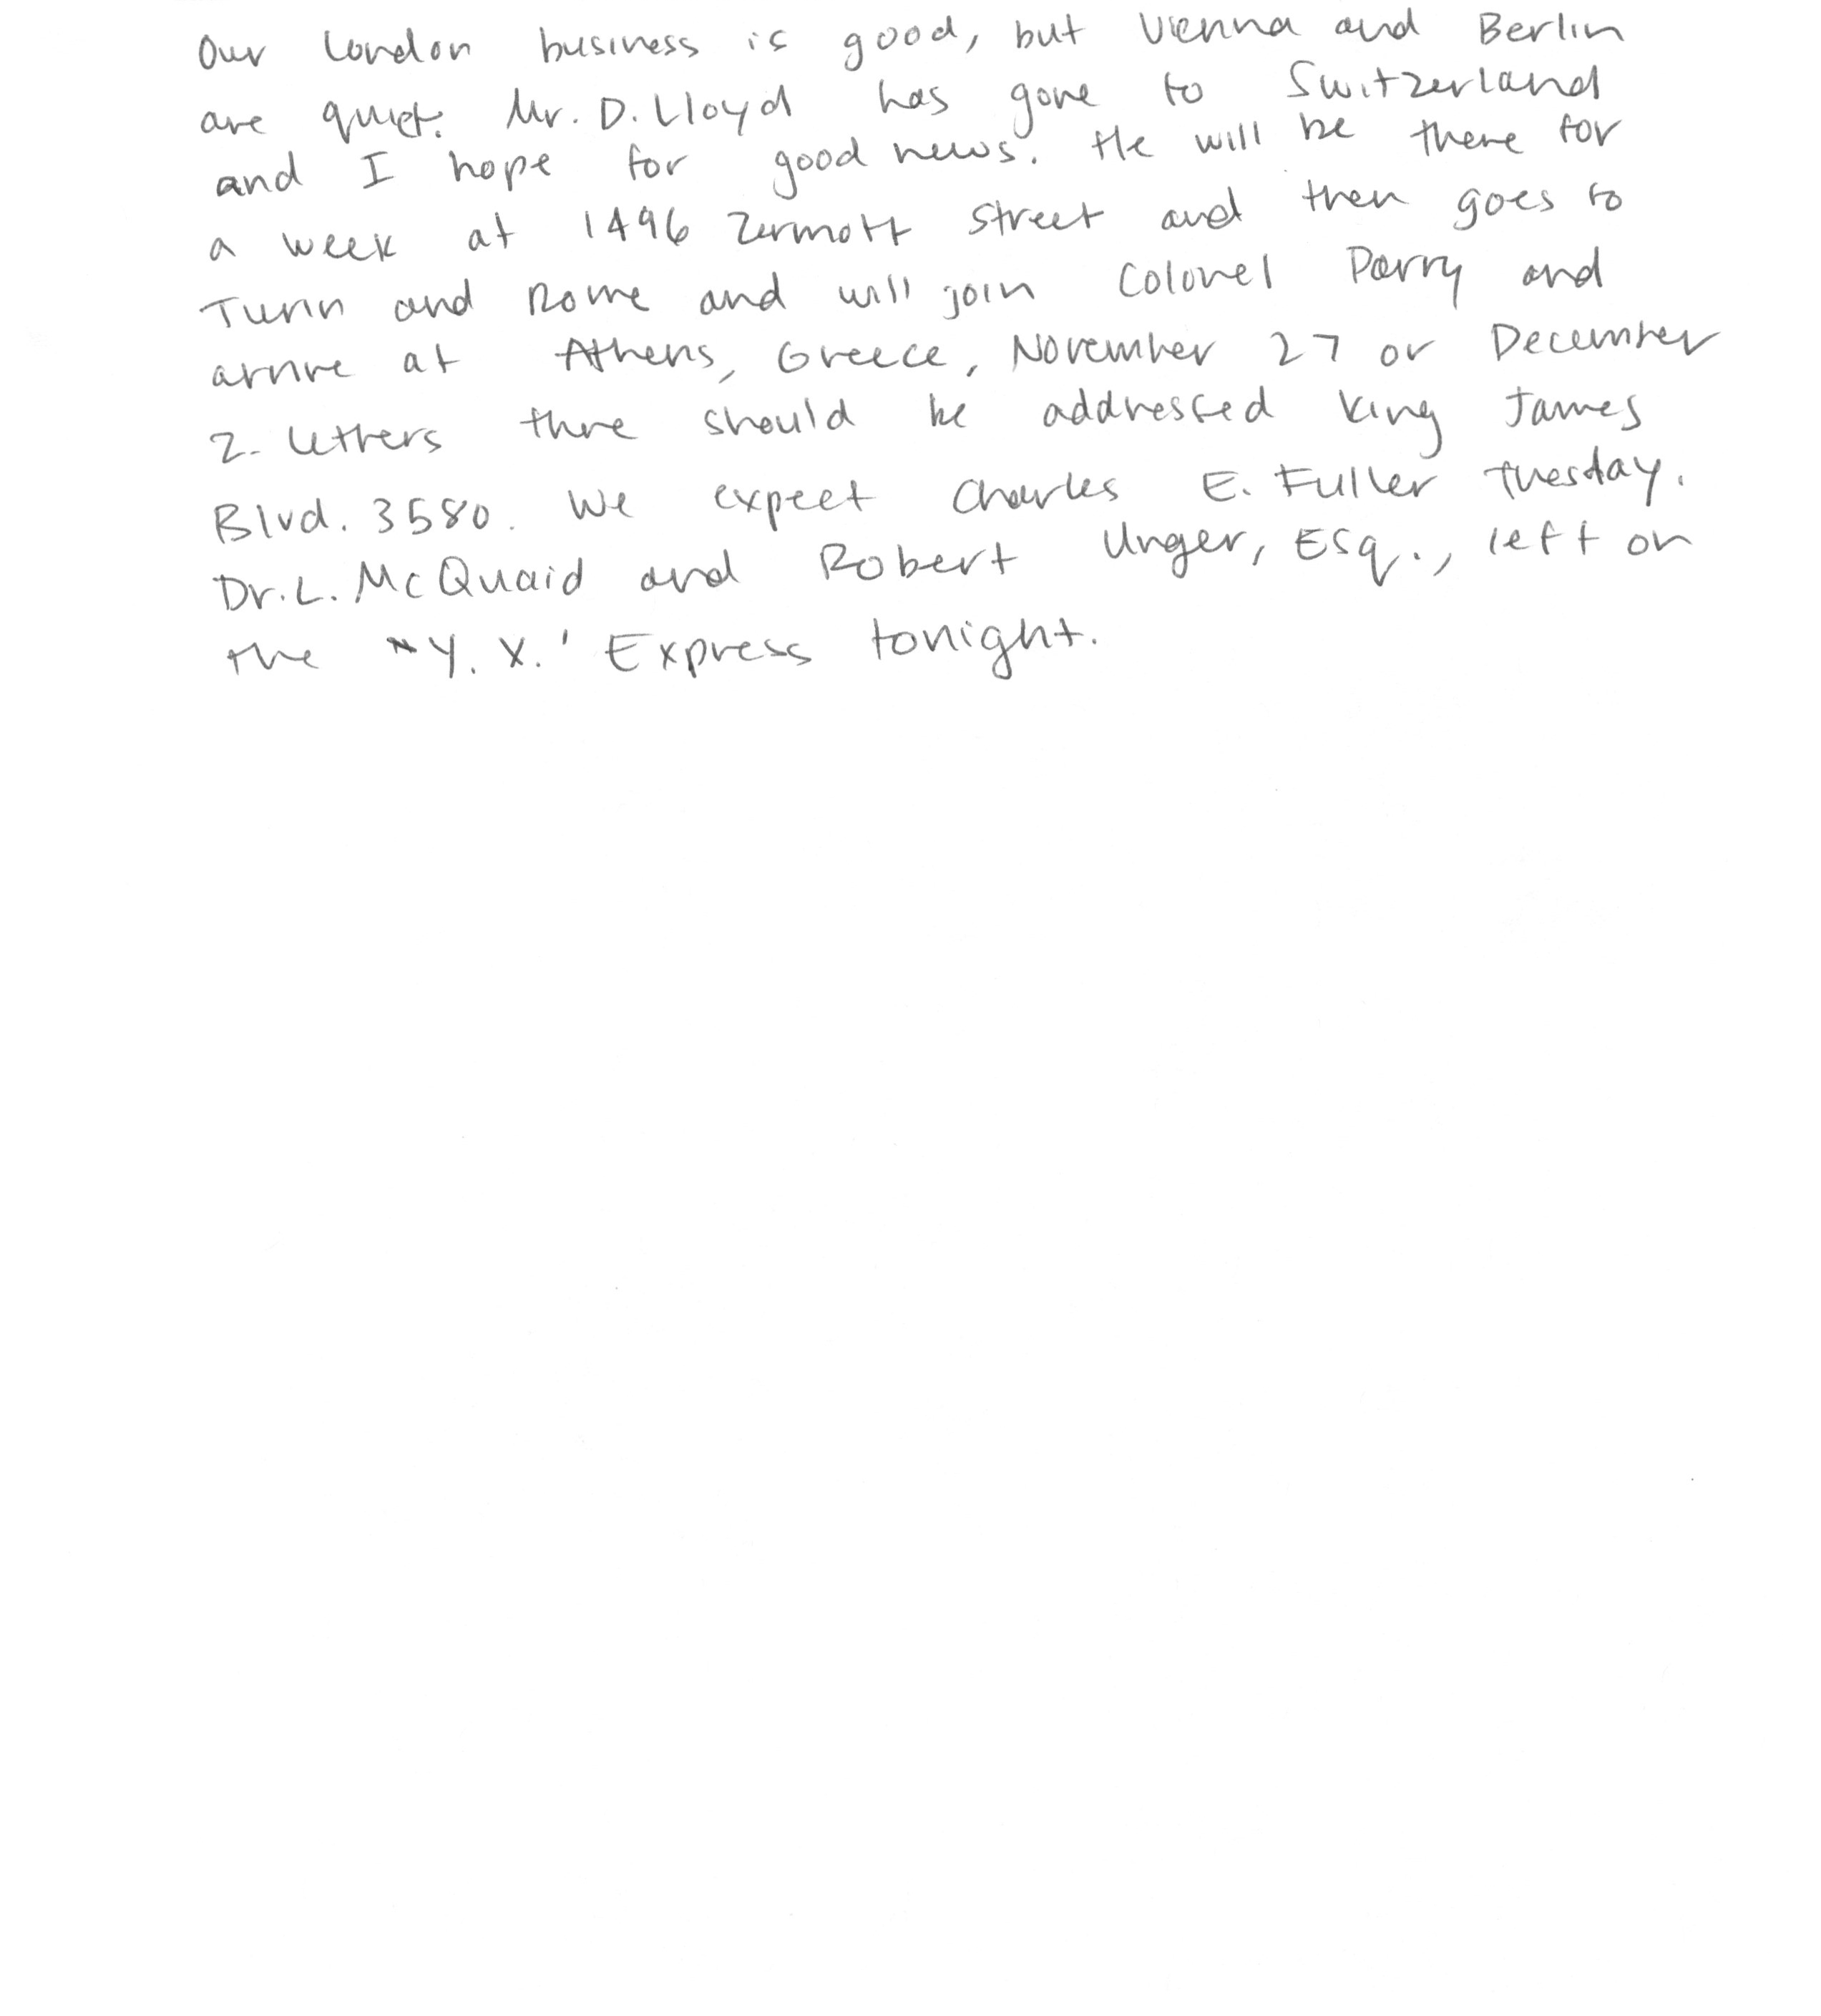 Our London business is good, but Vienna and Berlin
are quiet. Mr. D. Lloyd has gone to Switzerland
and I hope for good news. He will be there for
a week at 1496 Zermott street and then goes to
Turin and Rome and will join Colonel Parry and
arrive at Athens, Greece, November 27 or December
2. Letters there should be addressed King James
Blvd. 3580. We expect Charles E. Fuller Tuesday.
Dr. L. McQuaid and Robert Unger, Esq., left on
the "Y. X.' Express tonight.